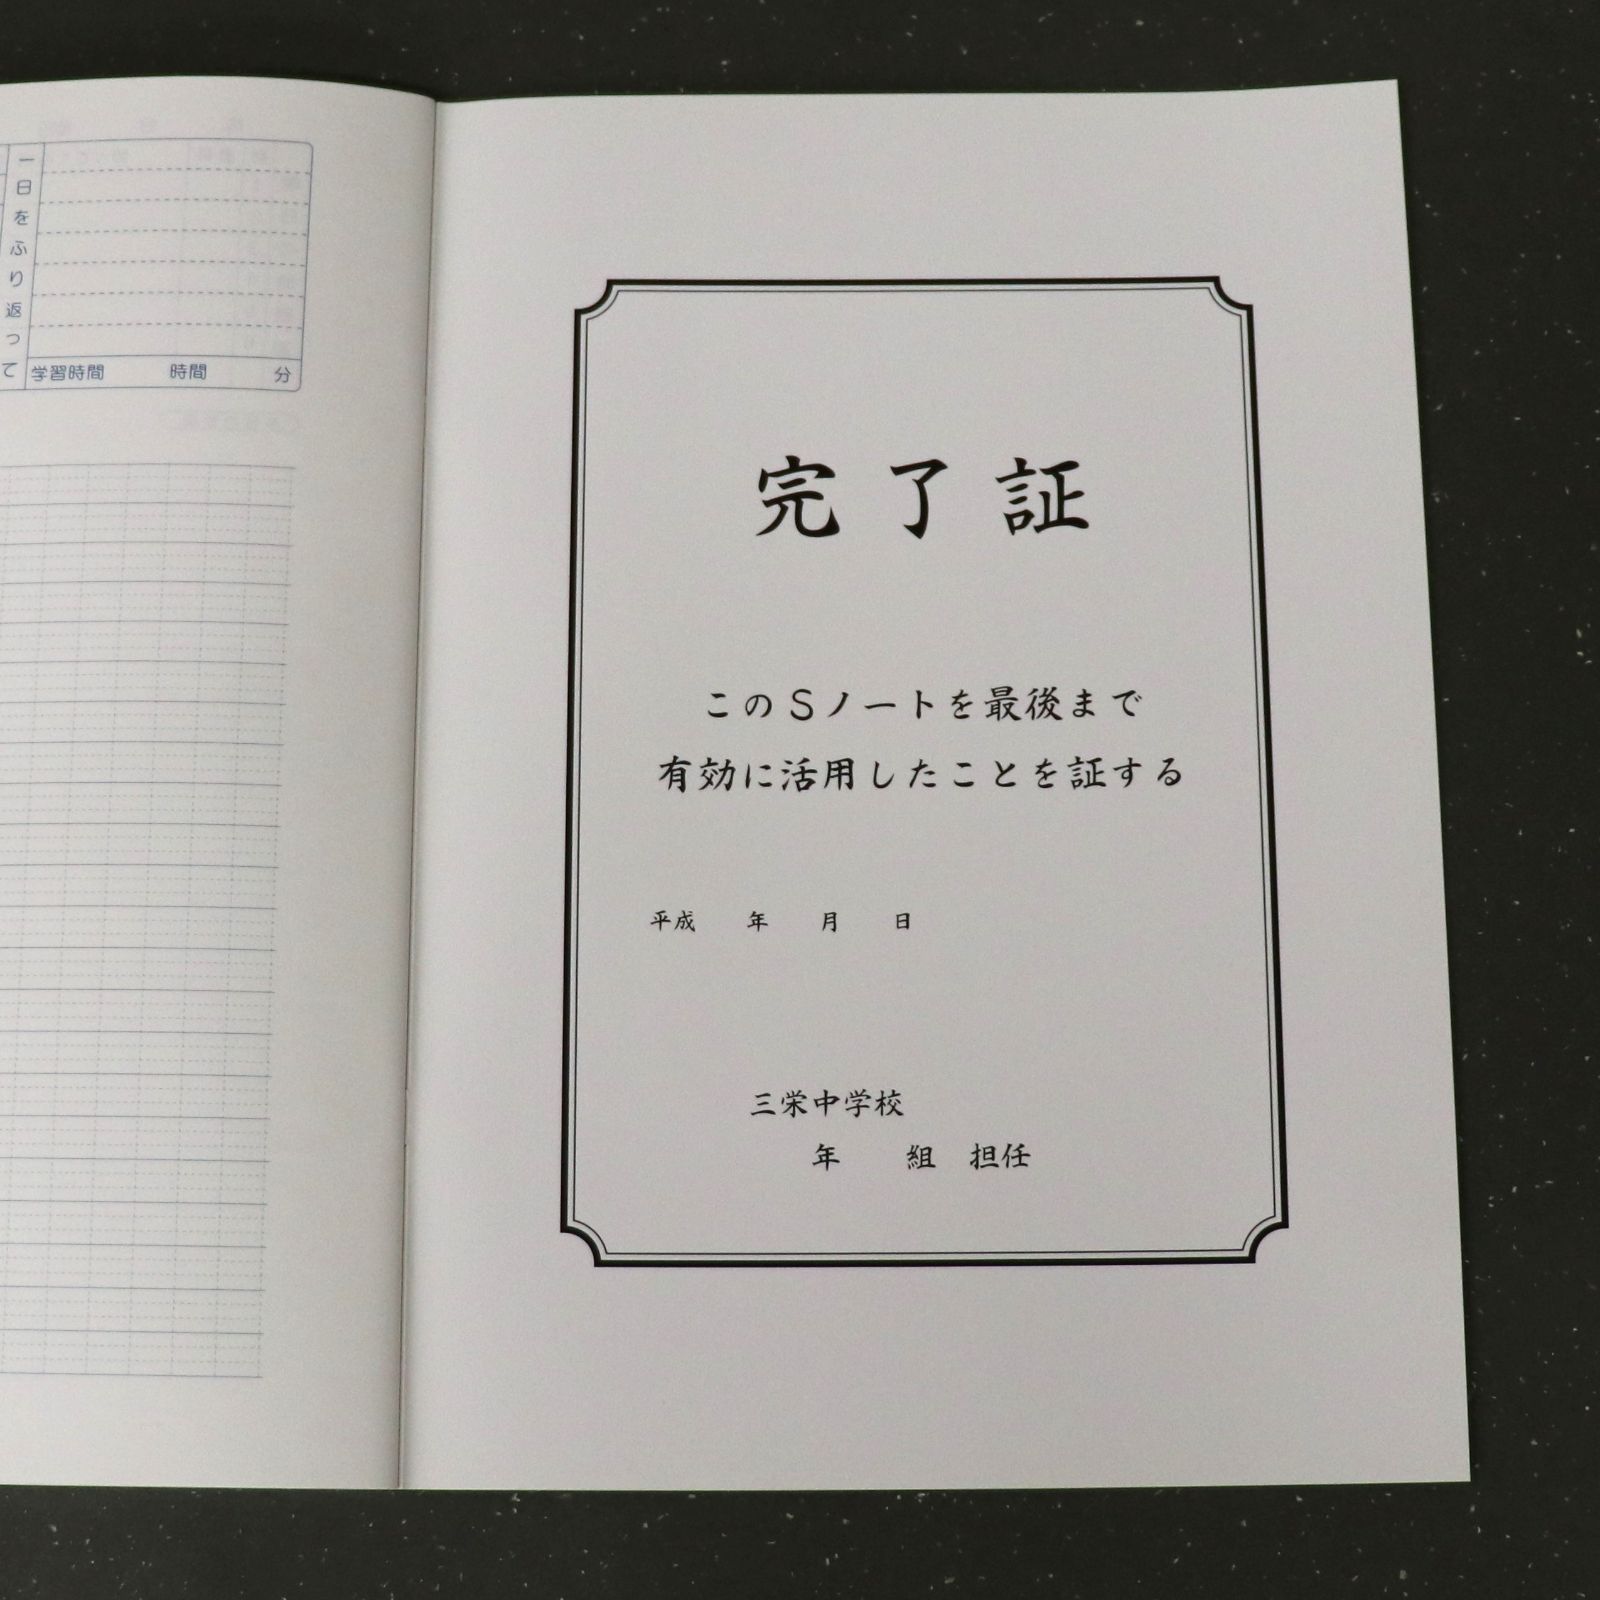 一日をふり返って
学習時間 時間 分
完了証
このSノートを最後まで
有効に活用したことを証する
平成 年 月 日
三栄中学校
年 組 担任